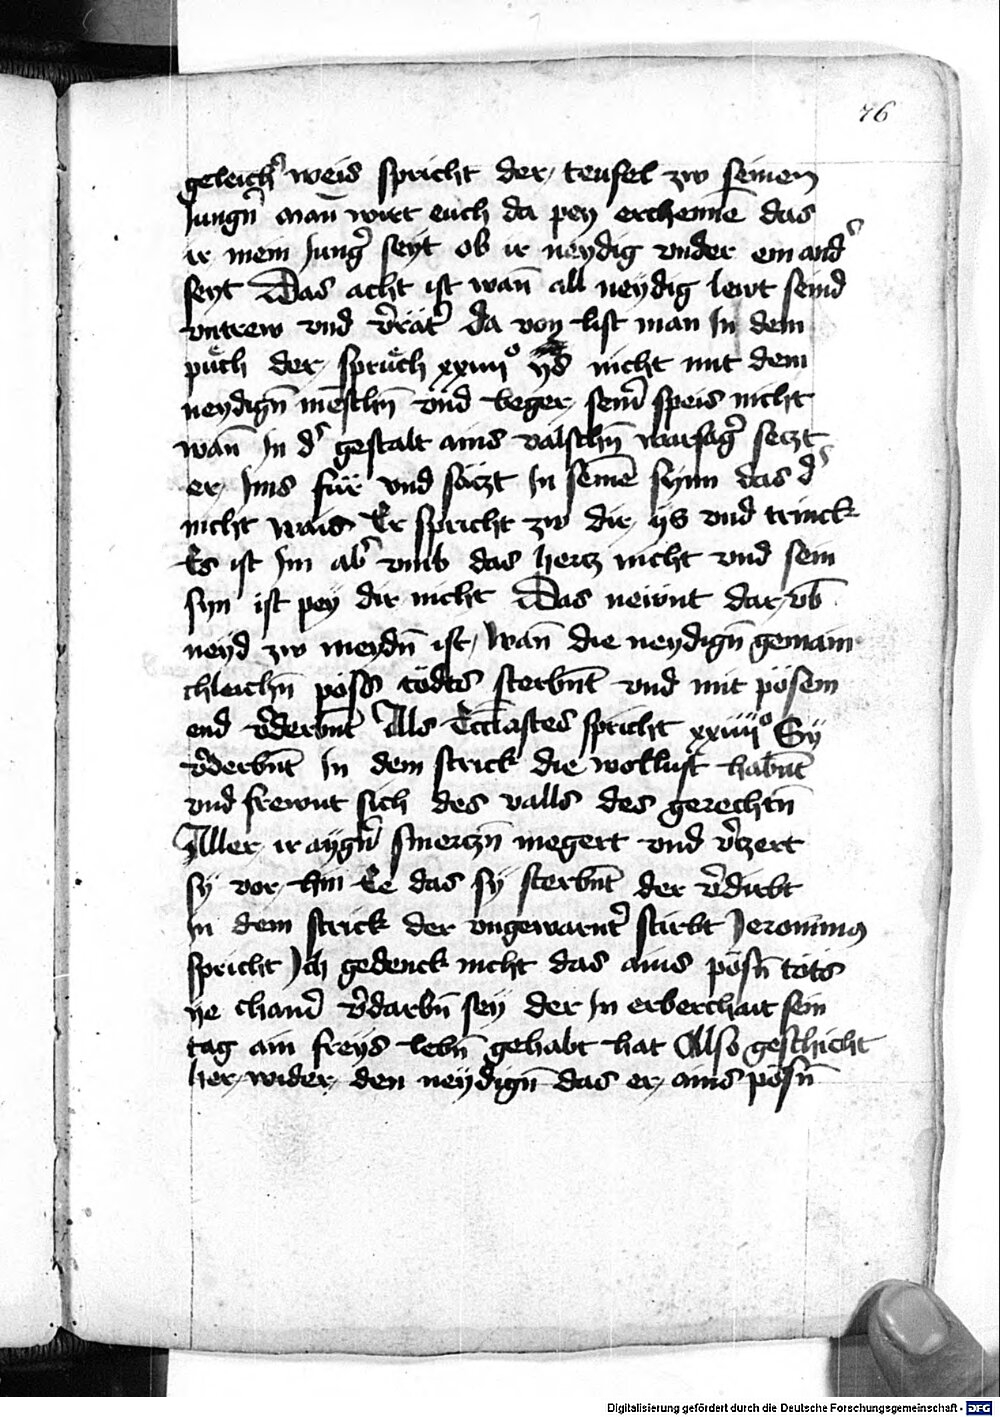 76
geleich' weis spricht der teufel zw seinen
Jungn̄ man̄ wirt euch da pey erchennē das
ir mein Jung' seyt ob ir neydig vnder ein and'
seyt Das acht ist wan̄ all neydig lewt seind
vntrew vnd v'rät' da von list man In dem
pu͑ch der spru͑ch xxiiijo ys nicht mit dem
neydign̄ menschn̄ vnd beger sein' speis nicht
wan̄ In d' gestalt ains valschn̄ warsag' seczt
er Ims für vnd säczt In seinē synn das d'
nicht wais Er spricht zw dir ys vnd trinck
Es ist Im ab' vmb das hercz nicht vnd sein
syn ist pey dir nicht Das newnt dar vb̄
neyd zw meydn̄ ist wan̄ die neydign̄ gemain
chleichn̄ pöss tödts sterbnt̄ vnd mit pösem
end v'derbnt̄ Als Eccl̄astes spricht xxiiijo Sy
v'derbnt̄ In dem strick die wollust habnt̄
vnd frewnt sich des valls des gerechtn̄
Aller ir aygn' smerczn̄ megert vnd v'czert
sy vor hin Ee das sy sterbnt̄ der v'dirbt
In dem strick der vngewarnt' stirbt Jeronimus
spricht Ich gedenck nicht das ains pösn̄ töts
ye chain' v'darbn̄ sey der In erberchait sein
tag ain freys lebn̄ gehabt hat Also geschicht
her wider den neydign̄ das er ains pösn̄
Digitalisierung gefördert durch die Deutsche Forschungsgemeinschaft - DFG